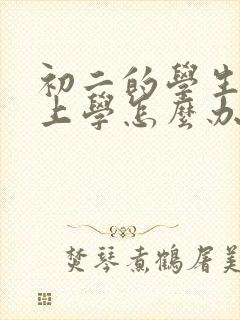 初二的學生
上學怎麼办
焚琴煮鶴屠美